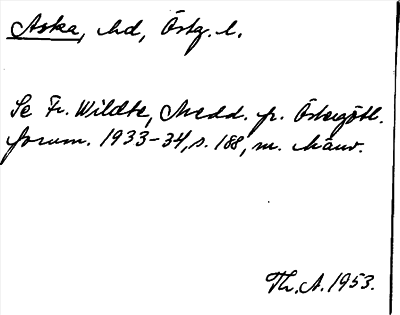 Aska, hd, Östg. l.
Se Fr. Wildte, Medd. fr. Östergötl.
fornm. 1933-34, s. 188, m. hänv.
Th. A. 1953.